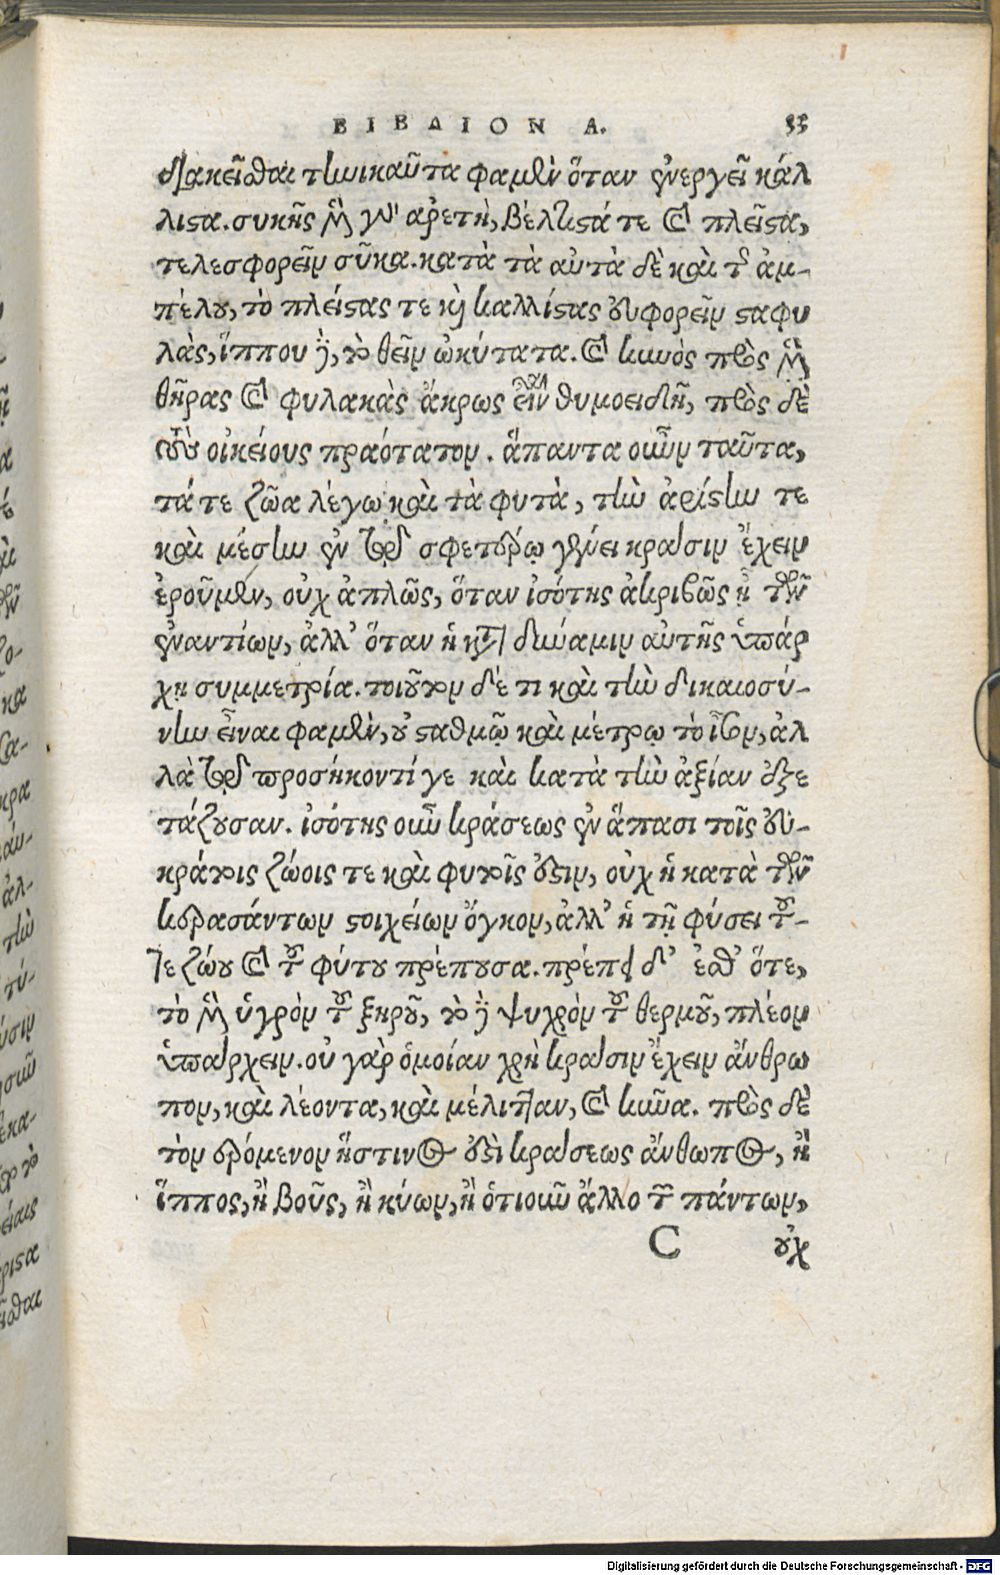 ΒΙΒΛΙΟΝ Α. 33
διακεῖσθαι τηνικαῦτα φαμὲν ὅταν ἐνεργεῖ κάλ
λιστα. συκῆς μὲν γὰρ ἀρετὴ, βέλτιστά τε καὶ πλεῖστα,
τελεσφορεῖν σῦκα. κατὰ τὰ αὐτὰ δὲ καὶ τῆς ἀμ-
πέλου, τὸ πλείστας τε καὶ καλλίστας ἐκφορεῖν σταφυ
λὰς, ἵππου δὲ, τὸ θεῖν ὠκύτατα. καὶ κυνὸς πρὸς μὲν
θῆρας καὶ φυλακὰς ἄκρως εἶναι θυμοειδῆ, πρὸς δὲ
τοὺς οἰκείους πραότατον. ἅπαντα οὖν ταῦτα,
τά τε ζῶα λέγω καὶ τὰ φυτὰ, τὴν ἀρίστην τε
καὶ μέσην ἐν τῷ σφετέρῳ γένει κρᾶσιν ἔχειν
ἐροῦμεν, οὐχ ἁπλῶς, ὅταν ἰσότης ἀκριβῶς ᾖ τῶν
ἐναντίων, ἀλλ' ὅταν ἡ κατὰ δύναμιν αὐτῆς ὑπάρ
χῃ συμμετρία. τοιοῦτον δέ τι καὶ τὴν δικαιοσύ-
νην εἶναι φαμὲν, οὐ σταθμῷ καὶ μέτρῳ τὸ ἶσον, ἀλ
λὰ τῷ προσήκοντί γε καὶ κατὰ τὴν ἀξίαν ἐξε
τάζουσαν. ἰσότης οὖν κράσεως ἐν ἅπασι τοῖς εὐ-
κράτοις ζώοις τε καὶ φυτοῖς ἐστιν, οὐχ ἡ κατὰ τῶν
κερασάντων στοιχείων ὄγκον, ἀλλ' ἡ τῇ φύσει τοῦ-
τε ζώου καὶ τοῦ φύτου πρέπουσα. πρέπει δ' ἐσθ' ὅτε,
τὸ μὲν ὑγρὸν τοῦ ξηροῦ, τὸ δὲ ψυχρὸν τοῦ θερμοῦ, πλέον
ὑπάρχειν. οὐ γὰρ ὁμοίαν χρὴ κρᾶσιν ἔχειν ἄνθρω
πον, καὶ λέοντα, καὶ μέλιτταν, καὶ κῦνα. πρὸς δὲ
τὸν ἐρόμενον ἥστινος ἐστὶ κράσεως ἄνθωπος, ἢ
ἵππος, ἢ βοῦς, ἢ κύων, ἢ ὁτιοῦν ἄλλο τῶν πάντων,
C οὐχ
Digitalisierung gefördert durch die Deutsche Forschungsgemeinschaft - DFG